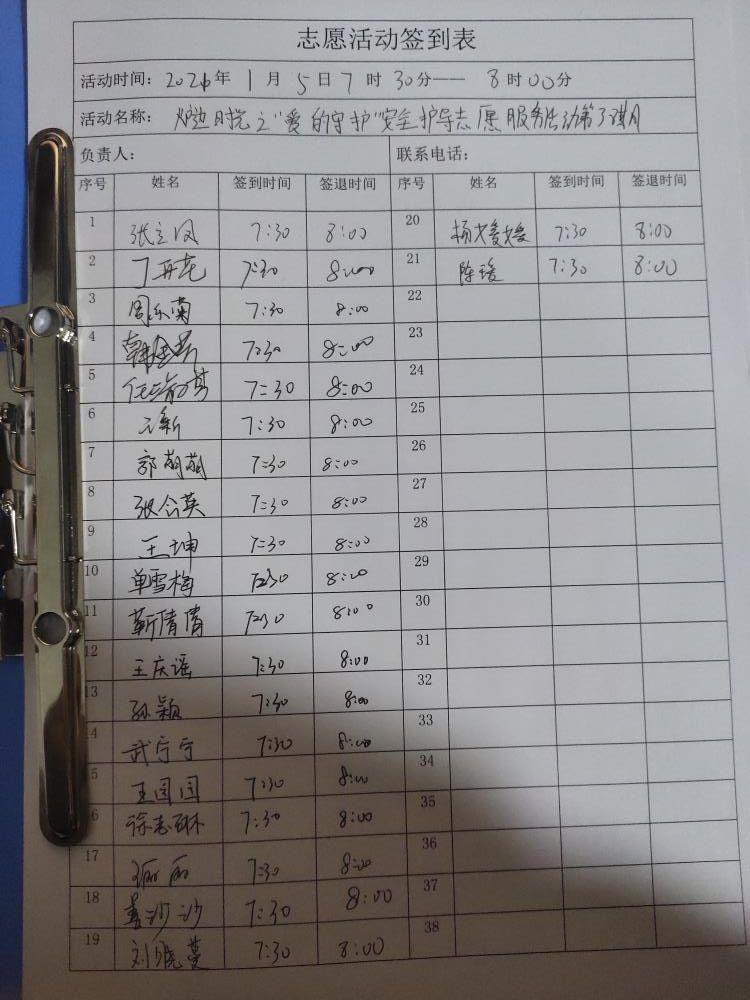 志愿活动签到表
活动时间: 2026年 1月5日7时30分——8时00分
活动名称: 时光之"爱的守护"安全护导志愿服务活动第
负责人: 联系电话:
序号 姓名 签到时间 签退时间 序号 姓名 签到时间 签退时间
1 张立凤 7:30 8:00 20 杨媛媛 7:30 8:00
2 丁再花 7:30 8:00 21 陈瑗 7:30 8:00
3 周乐菊 7:30 8:00 22
4 7:30 8:00 23
5 7:30 8:00 24
6 7:30 8:00 25
7 郭萌萌 7:30 8:00 26
8 张合英 7:30 8:00 27
9 王坤 7:30 8:00 28
10 单雪梅 7:30 8:00 29
11 靳倩倩 7:30 8:00 30
12 王庆谣 7:30 8:00 31
13 孙颖 7:30 8:00 32
4 武宁宁 7:30 8:00 33
5 王园园 7:30 8:00 34
6 徐志琳 7:30 8:00 35
17 7:30 8:00 36
18 姜沙沙 7:30 8:00 37
19 刘晓蔓 7:30 8:00 38